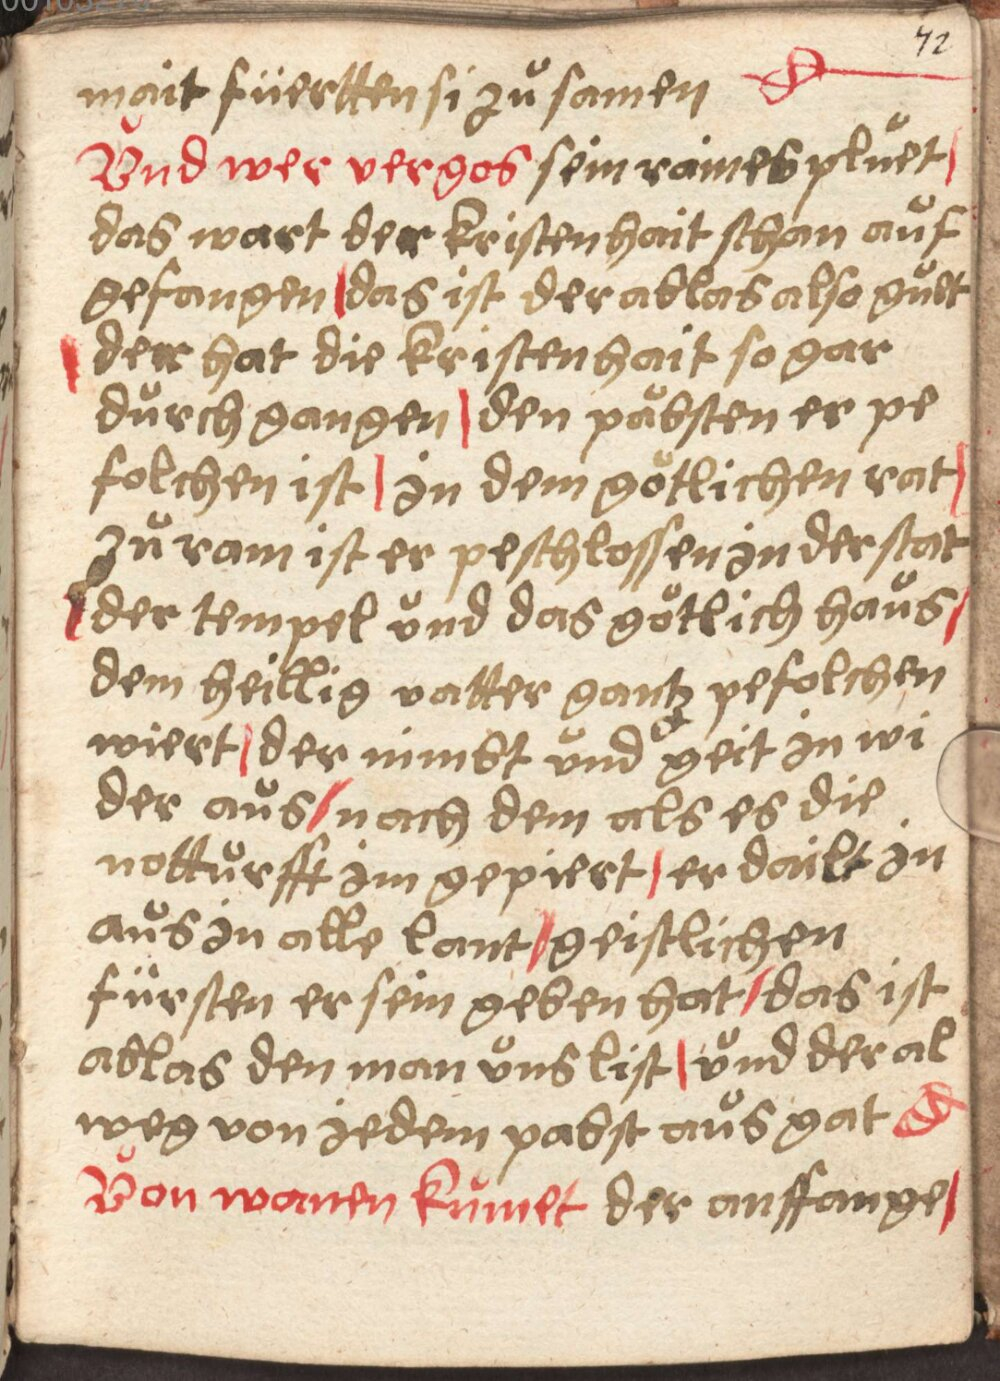 72
mait füertten si zů samen
Vnd wer vergos sein raines plůet /
das wart der kristenhait schan aůf
gefangen / das ist der ablas also gůet
/ der hat die kristenhait so gar
důrch gangen / den päbsten er pe
folchen ist / in dem götlichen rat /
zů ram ist er peschlossen in der stat
/ der tempel ůnd das götlich haůs /
dem heillig vatter gantz pefolchen
wiert / der nimbt ůnd geit in wi
der aůs / nach dem als es die
nottůrfft im gepiert / er dailt in
aůs in alle lant / geistlichen
fürsten er sein geben hat / das ist
ablas den man ůns list / ůnd der al
weg von jedem pabst aůs gat
Von wanen kůmet der anffange /